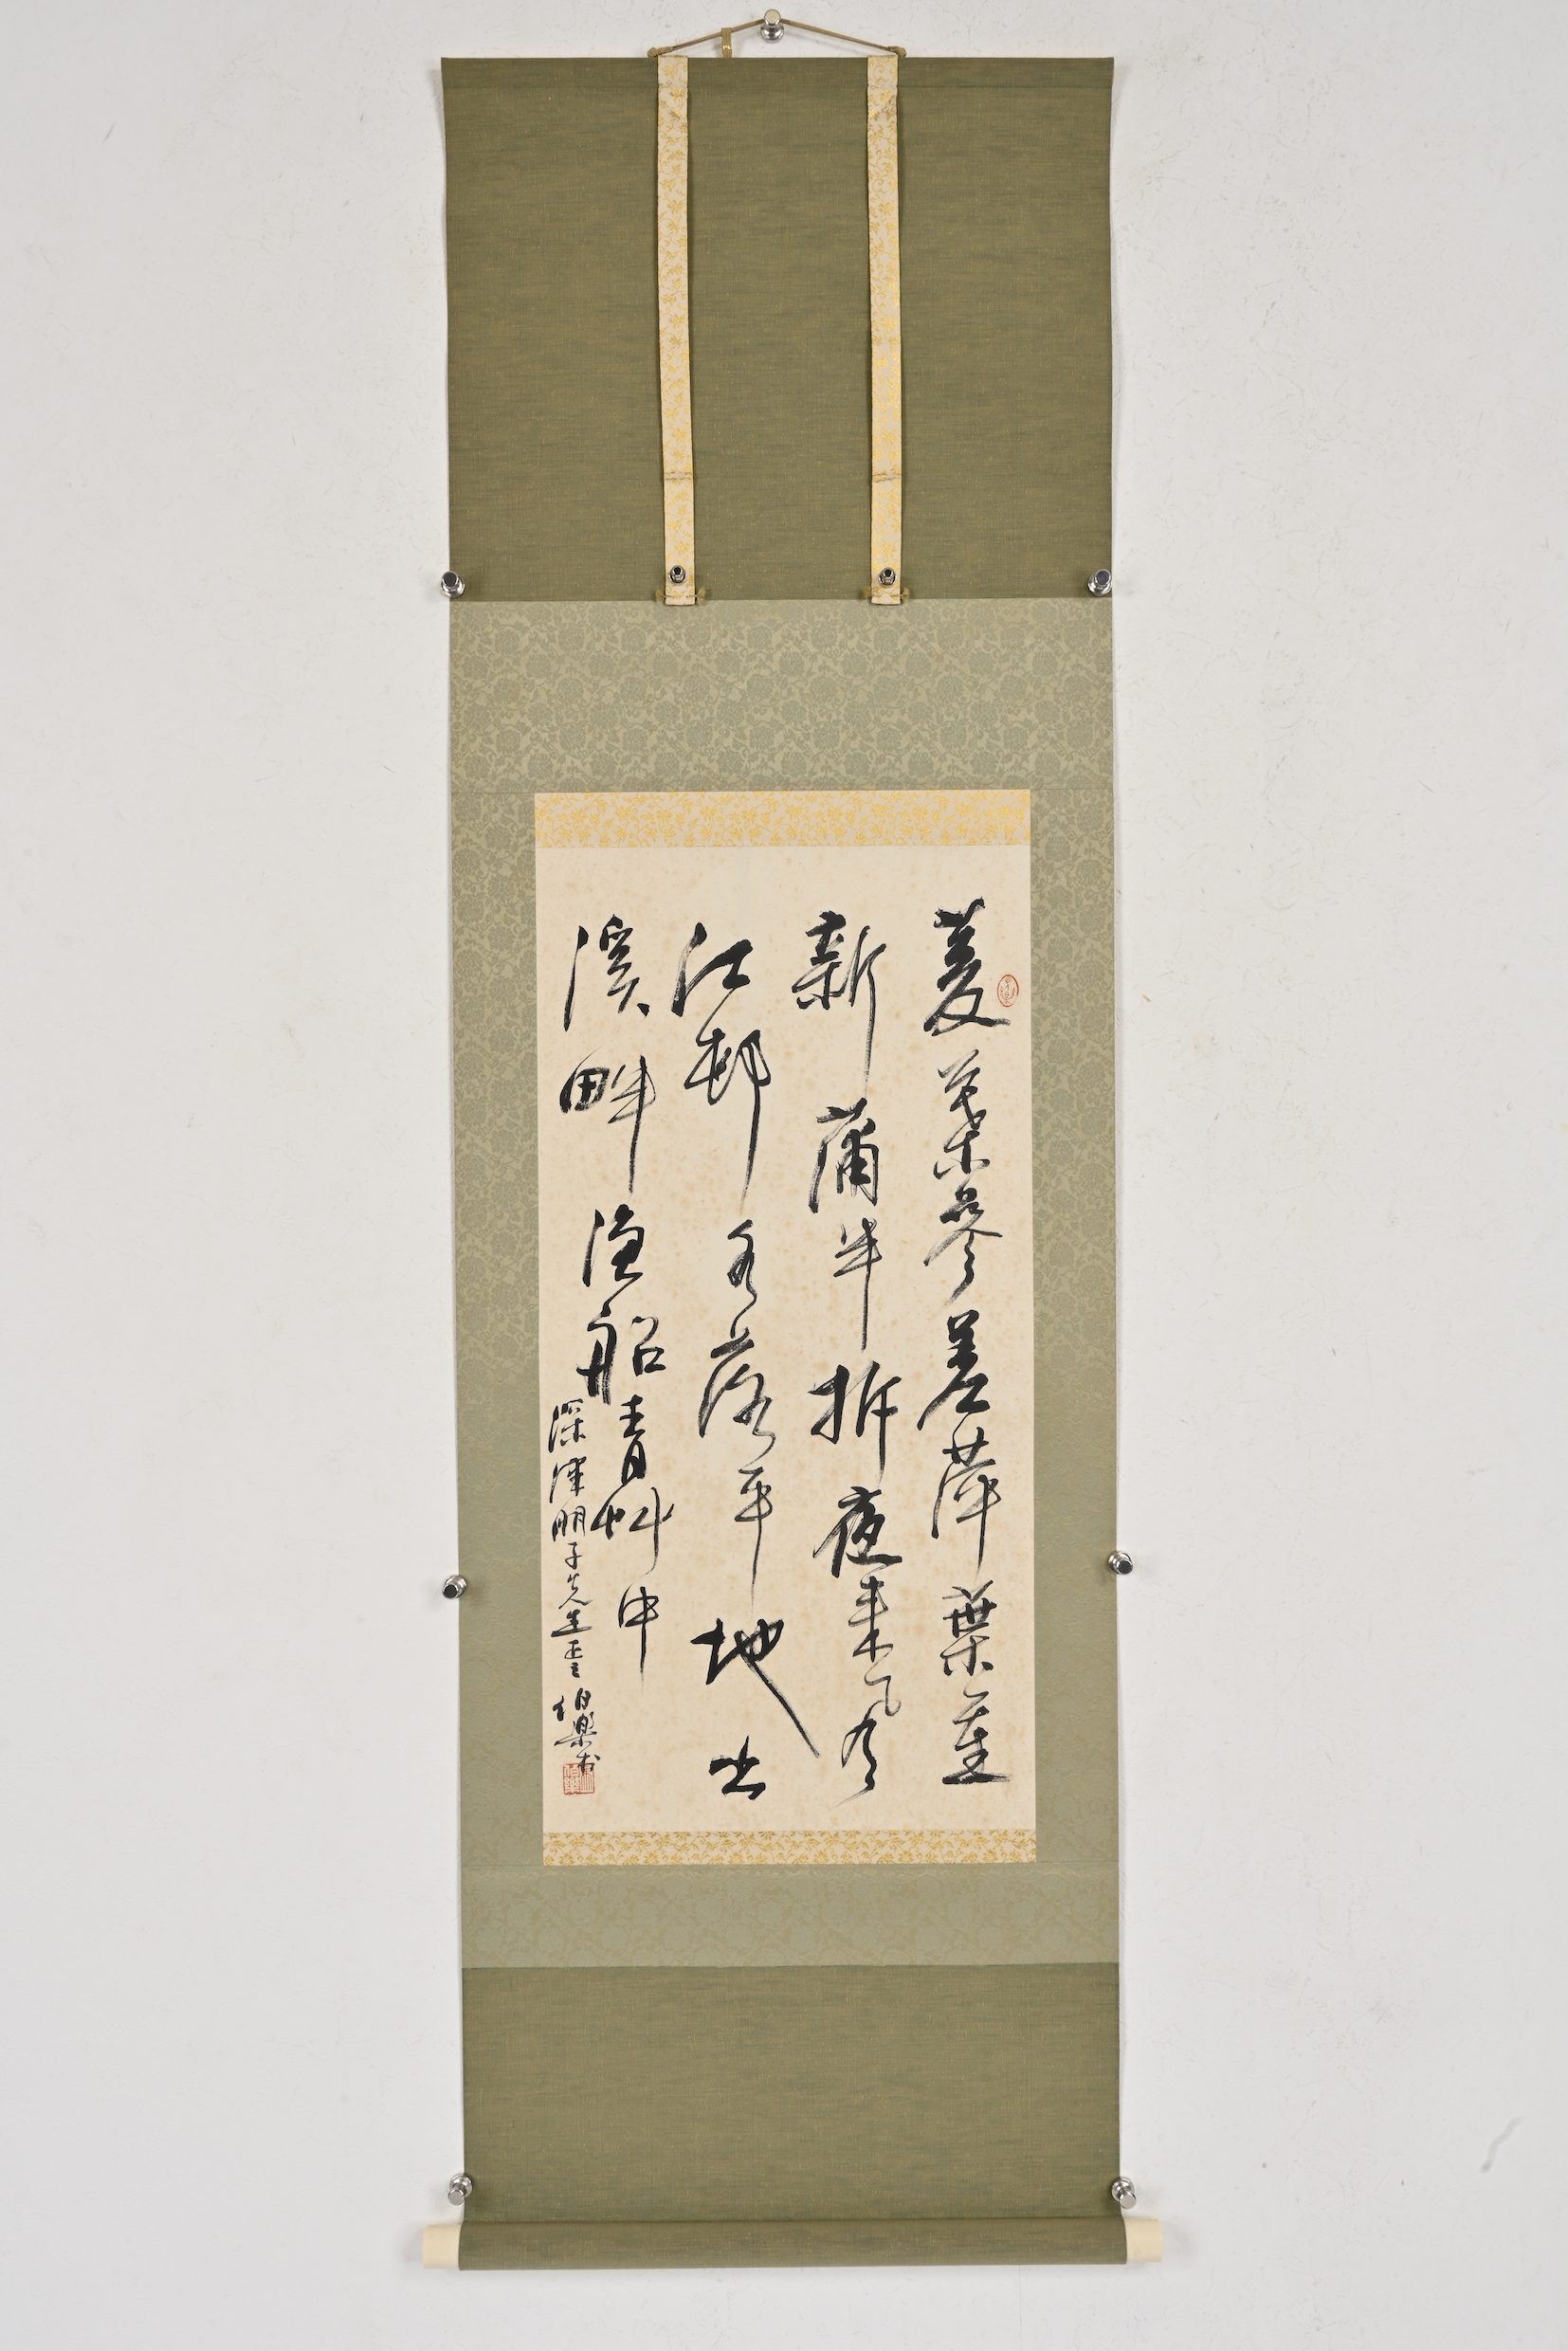 菱葉參差萍葉重
新蒲半折夜來風
江邨水落平地出
溪畔漁船青艸中
深津朋子先生正之 伯樂书